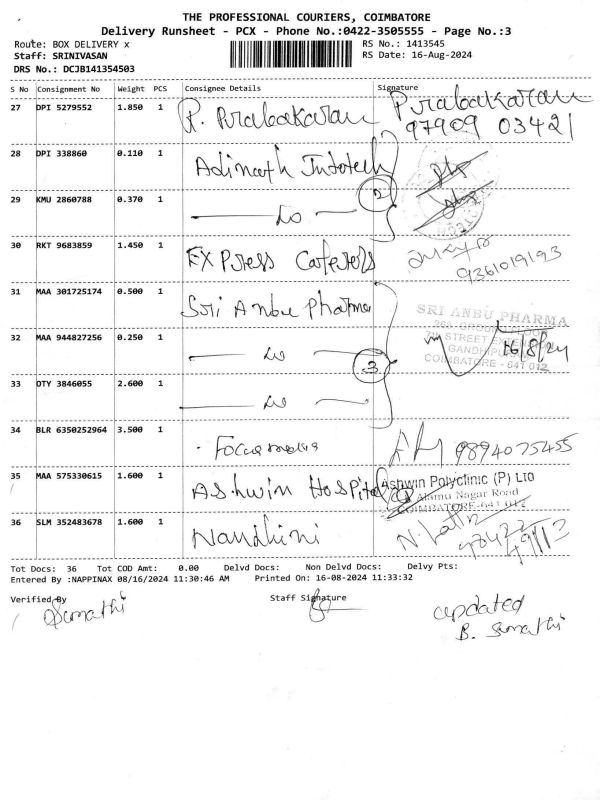 THE PROFESSIONAL COURIERS, COIMBATORE
Delivery Runsheet - PCX - Phone No.:0422-3505555 - Page No.:3
Route: BOX DELIVERY x RS No.: 1413545
Staff: SRINIVASAN RS Date: 16-Aug-2024
DRS No.: DCJB141354503
S No Consignment No Weight PCS Consignee Details Signature
27 DPI 5279552 1.850 1 P. Prabakaran Prabakaran
97909 03421
28 DPI 338860 0.110 1 Adinath Infotech
29 KMU 2860788 0.370 1 2
30 RKT 9683859 1.450 1 EXPress Caterers 9361019193
31 MAA 301725174 0.500 1 Sri Anbu Pharma SRI ANBU PHARMA
32 MAA 944827256 0.250 1 7th STREET 16/8/24
GANDHIPU
COIMBATORE - 641 012
33 OTY 3846055 2.600 1 3
34 BLR 6350252964 3.500 1 Focus media 9894075455
35 MAA 575330615 1.600 1 Ashwin Hospital Ashwin Polyclinic (P) Ltd
Alamu Nagar Road
COIMBATORE-641 012
36 SLM 352483678 1.600 1 Nandhini
Tot Docs: 36 Tot COD Amt: 0.00 Delvd Docs: Non Delvd Docs: Delvy Pts:
Entered By :NAPPINAX 08/16/2024 11:30:46 AM Printed On: 16-08-2024 11:33:32
Verified By Staff Signature
Sumathi updated
B. Sumathi